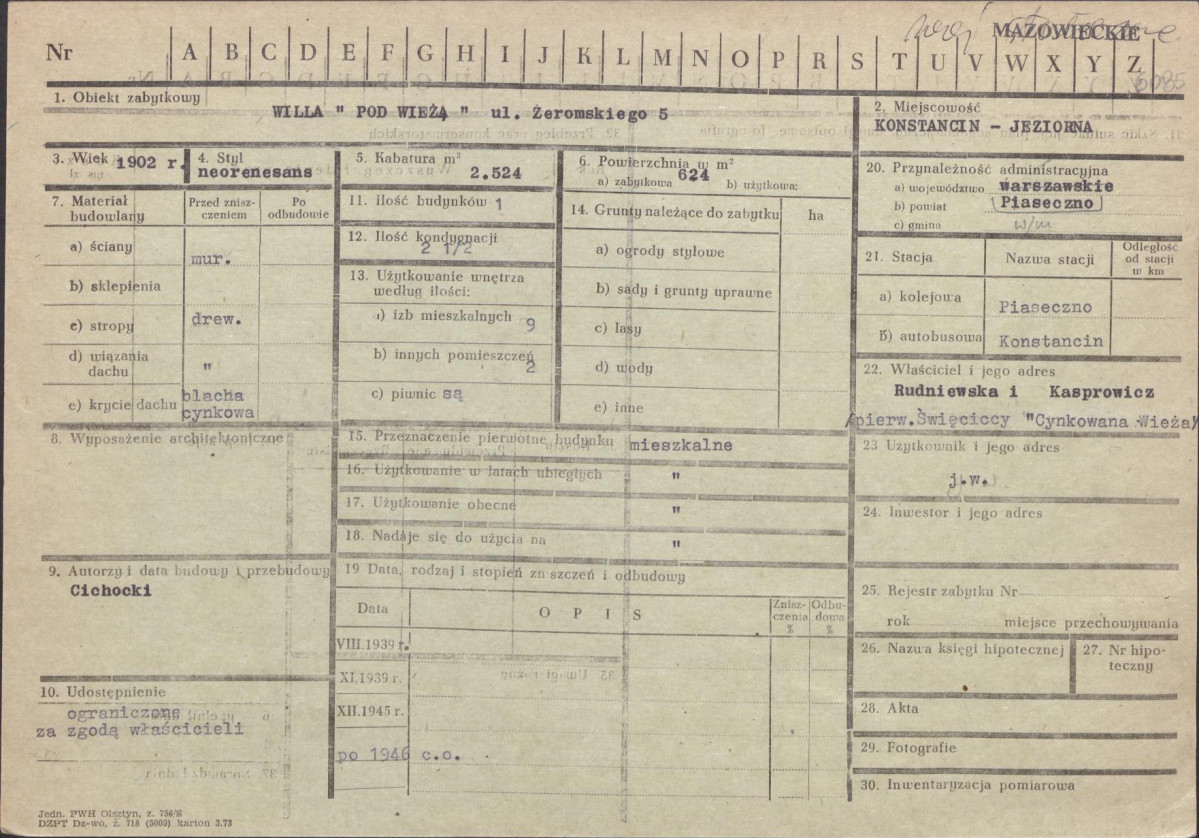 woj. stołeczne
MAZOWIECKIE
Nr A B C D E F G H I J K L M N O P R S T U V W X Y Z
6085
1. Obiekt zabytkowy
WILLA " POD WIEŻĄ " ul. Żeromskiego 5
2. Miejscowość
KONSTANCIN - JEZIORNA
3. Wiek 1902 r.
4. Styl
neorenesans
5. Kabatura m³
2.524
6. Powierzchnia w m²
a) zabytkowa 624 b) użytkowa:
7. Materiał budowlany
Przed zniszczeniem
Po odbudowie
a) ściany mur.
b) sklepienia
c) stropy drew.
d) wiązania dachu "
e) krycie dachu blacha
cynkowa
8. Wyposażenie architektoniczne
9. Autorzy i data budowy i przebudowy
Cichocki
10. Udostępnienie
ograniczone
za zgodą właścicieli
11. ilość budynków 1
12. Ilość kondygnacji
2 1/2
13. Użytkowanie wnętrza
według ilości:
a) izb mieszkalnych 9
b) innych pomieszczeń
2
c) piwnic są
14. Grunty należące do zabytku ha
a) ogrody stylowe
b) sady i grunty uprawne
c) lasy
d) wody
e) inne
15. Przeznaczenie pierwotne budynku mieszkalne
16. Użytkowanie w latach ubiegłych "
17. Użytkowanie obecne "
18. Nadaje się do użycia na "
19 Data, rodzaj i stopień zn szczeń i odbudowy
Data
O P I S
Zniszczenia %
Odbudowa %
VIII.1939 r.
XI.1939 r.
XII.1945 r.
po 1946 c.o.
20. Przynależność administracyjna
a) województwo warszawskie
b) powiat Piaseczno
c) gmina w/m
21. Stacja
Nazwa stacji
Odległość
od stacji
w km
a) kolejowa Piaseczno
b) autobusowa Konstancin
22. Właściciel i jego adres
Rudniewska i Kasprowicz
/pierw.Święciccy "Cynkowana Wieża/
23 Użytkownik i jego adres
j.w.
24. Inwestor i jego adres
25. Rejestr zabytku Nr
rok miejsce przechowywania
26. Nazwa księgi hipotecznej
27. Nr hipoteczny
28. Akta
29. Fotografie
30. Inwentaryzacja pomiarowa
Jedn. PWH Olsztyn, z. 756/S
DZPT Dz-wo, ż. 718 (5000) karton 3.73